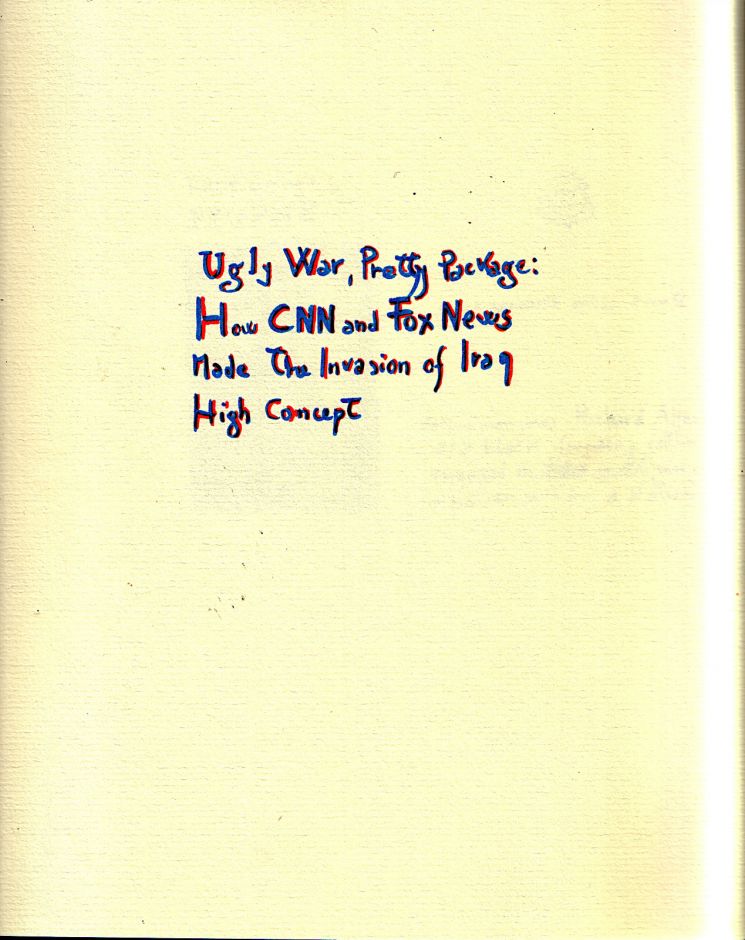 Ugly War, Pretty Package:
How CNN and Fox News
Made The Invasion of Iraq
High Concept